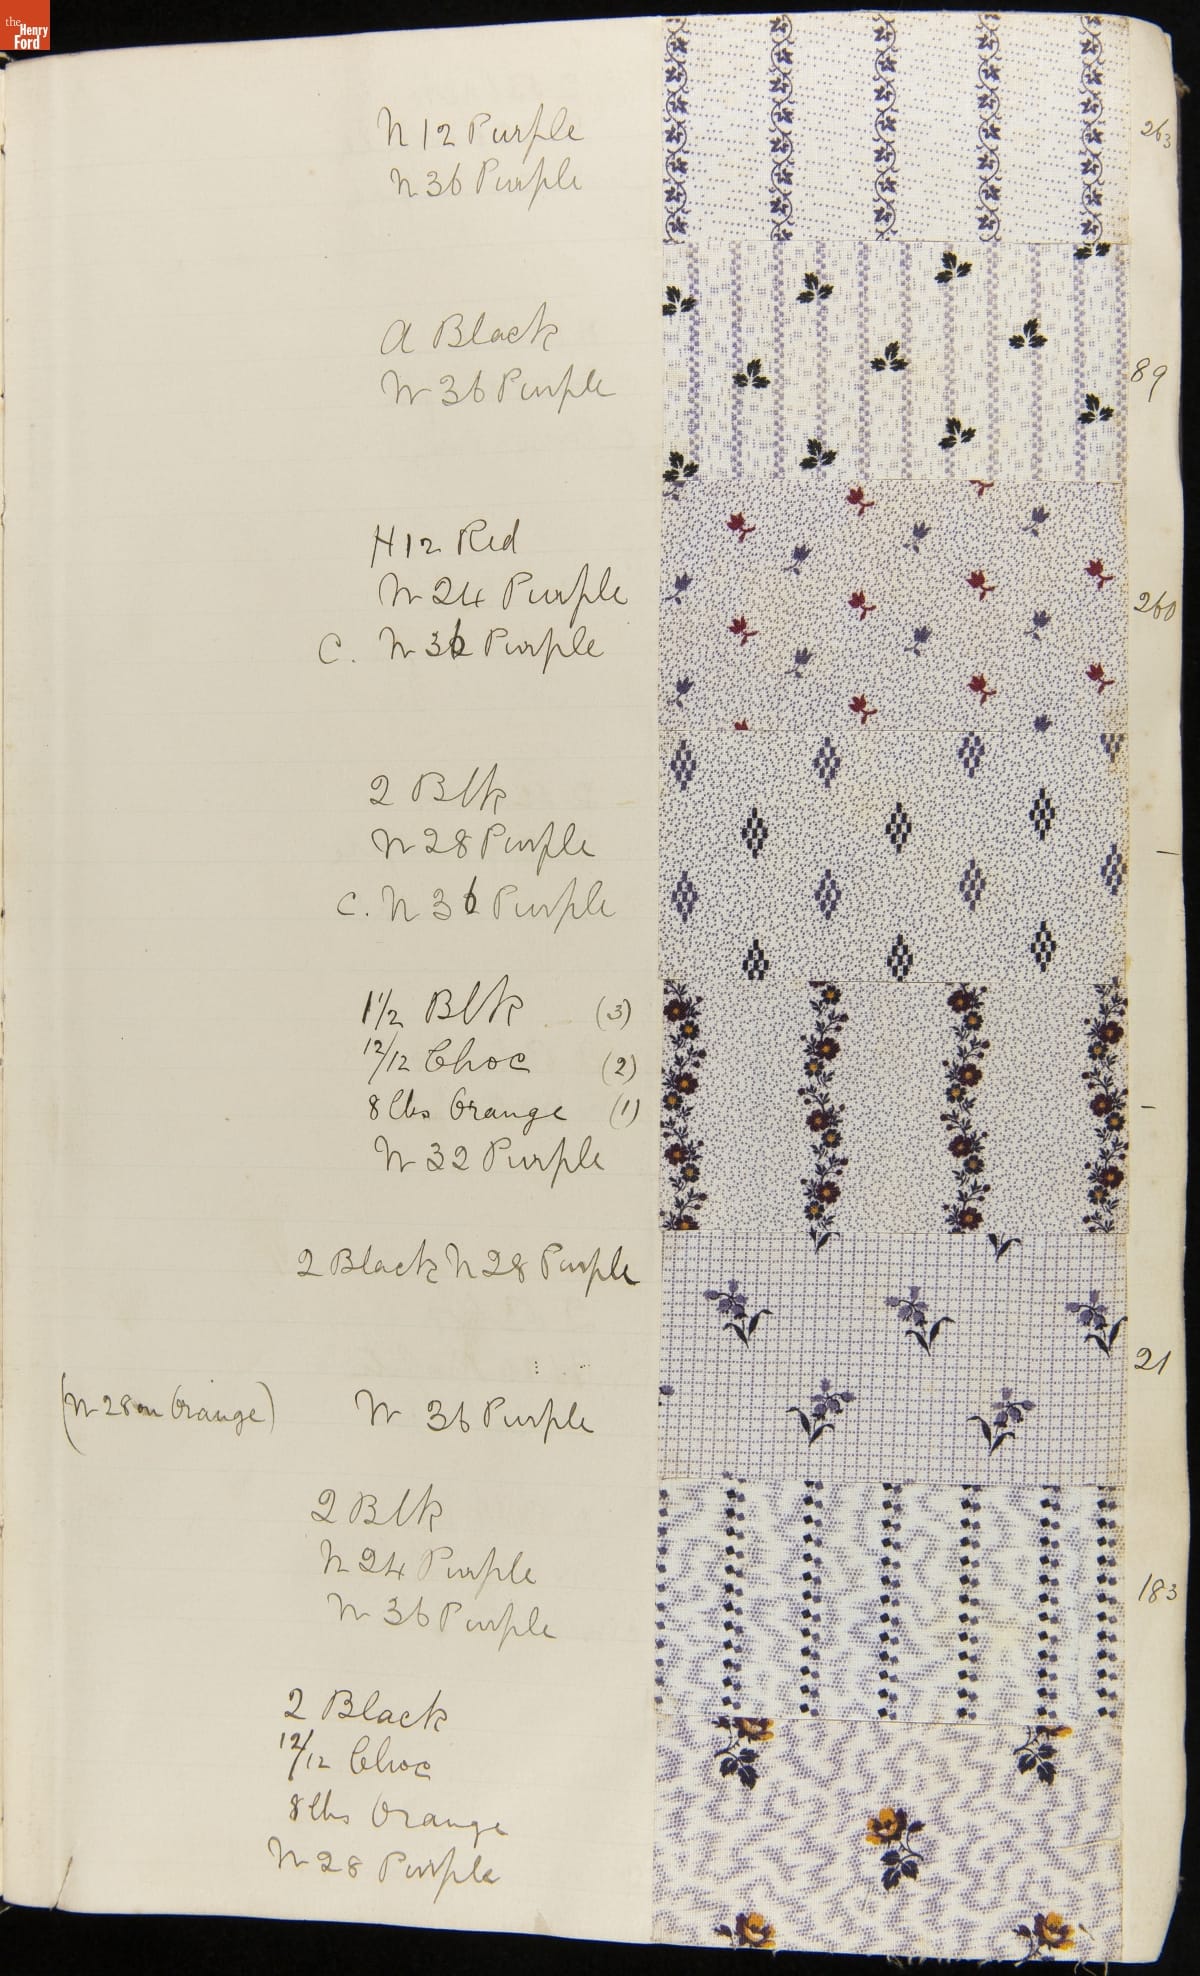 the
Henry
Ford
N 12 Purple
N 36 Purple
263
A Black
N 36 Purple
89
H12 Red
N 24 Purple
C. N 36 Purple
260
2 Blk
N 28 Purple
C. N 36 Purple
–
1 1/2 Blk (3)
12/12 Choc (2)
8 lbs Orange (1)
N 32 Purple
–
2 Black N 28 Purple
21
(N 28 on Orange) N 36 Purple
2 Blk
N 24 Purple
N 36 Purple
183
2 Black
12/12 Choc
8 lbs Orange
N 28 Purple